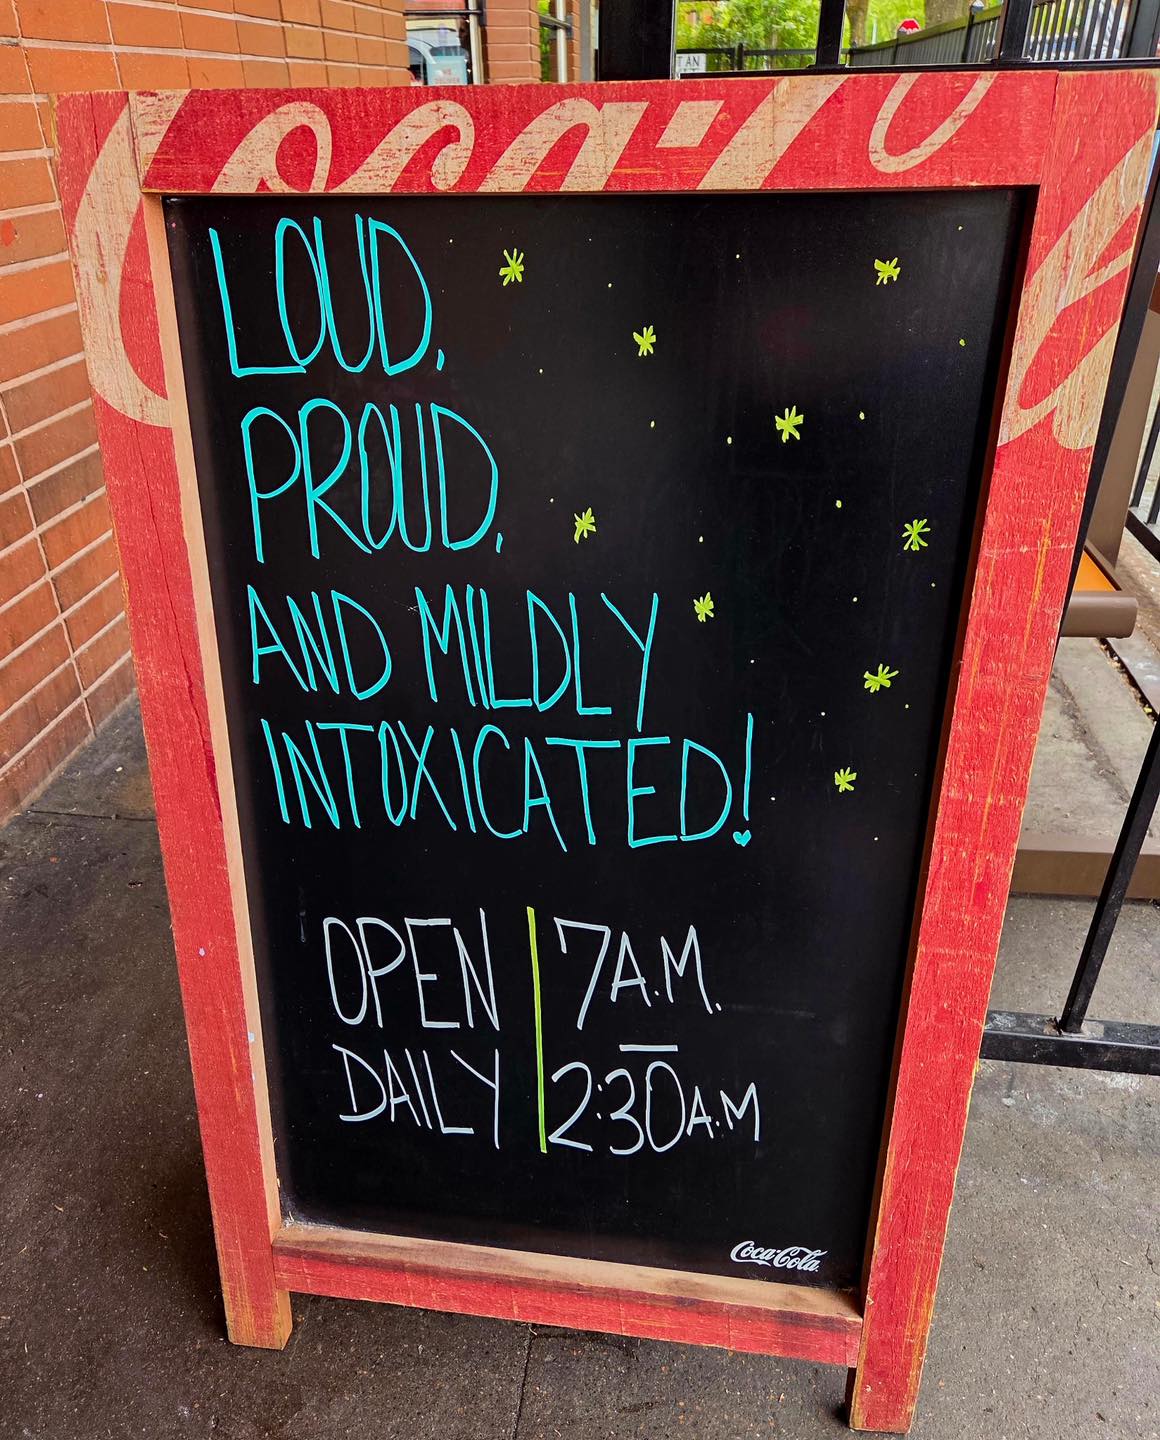 Coca-Cola
LOUD,
PROUD,
AND MILDLY
INTOXICATED!
OPEN
DAILY
7A.M.
—
2:30A.M
Coca-Cola